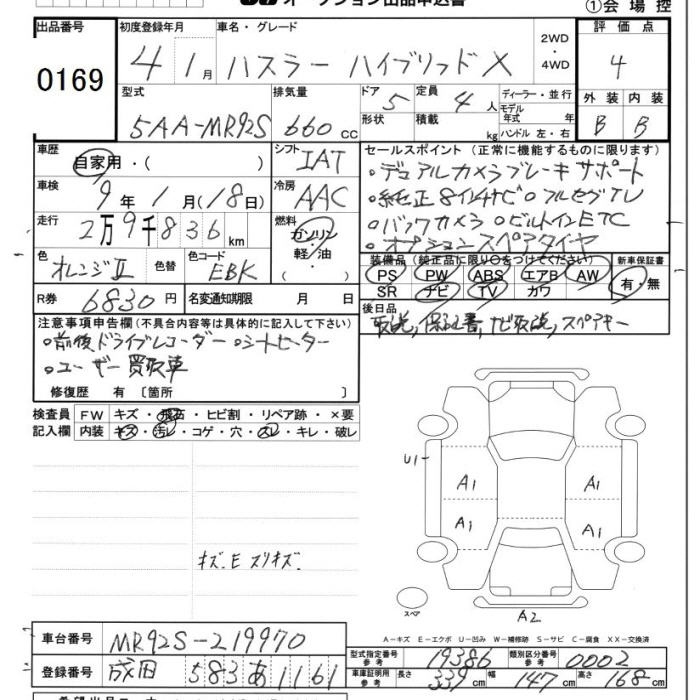 オークション出品申込書
①会場控
出品番号 初度登録年月 車名・グレード 2WD・4WD 評価点
0169 4 1月 ハスラー ハイブリッド X 4
型式 排気量 ドア 5 定員 4人 ディーラー・並行 外装 内装
5AA-MR92S 660cc 形状 積載 kg モデル年式 年 ハンドル 左・右 B B
車歴 自家用・( ) シフト IAT セールスポイント(正常に機能するものに限ります)
車検 9年 1月(18日) 冷房 AAC
。デュアルカメラブレーキサポート
。純正8インチナビ 。フルセグTV
走行 2万9千836km 燃料 ガソリン・軽・油・( )
。バックカメラ 。ビルトインETC
。オプションスペアタイヤ
色 オレンジⅡ 色替 色コード EBK
装備品(純正品に限り○をつけてください) 新車保証書
PS PW ABS エアB AW 有・無
SR ナビ TV カワ
R券 6830円 名変通知期限 月 日
後日品
取説,保証書,ナビ取説,スペアキー
注意事項申告欄(不具合内容等は具体的に記入して下さい)
。前後ドライブレコーダー 。シートヒーター
。ユーザー買取車
修復歴 有 〔箇所 〕
検査員 FW キズ・飛石・ヒビ割・リペア跡・×要
記入欄 内装 キズ・汚レ・コゲ・穴・スレ・キレ・破レ
U1
A1 A1
A1 A1
キズ.E スリキズ.
スペア
A2
A-キズ E-エクボ U-凹み W-補修跡 S-サビ C-腐食 XX-交換済
車台番号 MR92S-219970
型式指定番号 参考 19386 類別区分番号 参考 0002
登録番号 成田 583 あ 1161
車庫証明用 参考 長さ 339cm 幅 147cm 高さ 168cm